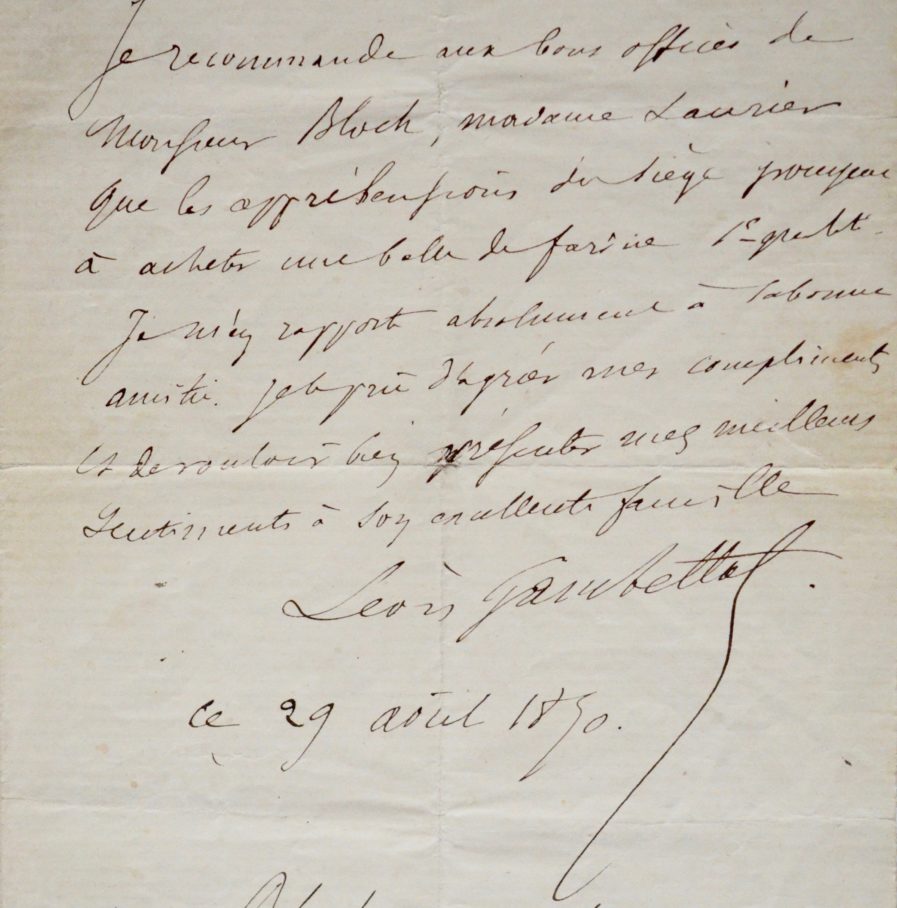 Je recommande aux bons offices de
Monsieur Bloch, madame Laurier
que les appréhensions du siège poussent
à acheter une balle de farine 1e qualité.
Je m'en rapporte absolument à sa bonne
amitié. Je le prie d'agréer mes compliments
et de vouloir bien présenter mes meilleurs
sentiments à son excellente famille
Léon Gambetta
ce 29 août 1870.